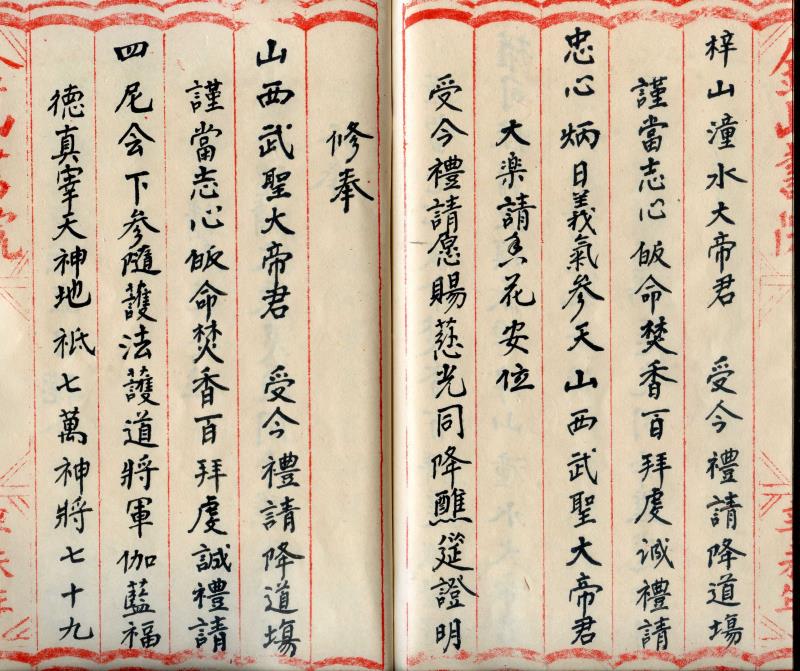 梓山潼水大帝君　受今禮請降道塲
謹當志心皈命焚香百拜虔誠禮請
忠心炳日義氣參天山西武聖大帝君
大楽請香花安位
受今禮請愿賜慈光同降醮筵證明
修奉
山西武聖大帝君　受今禮請降道塲
謹當志心皈命焚香百拜虔誠禮請
四尼会下參隨護法護道將軍伽藍福
德真宰天神地祇七萬神將七十九